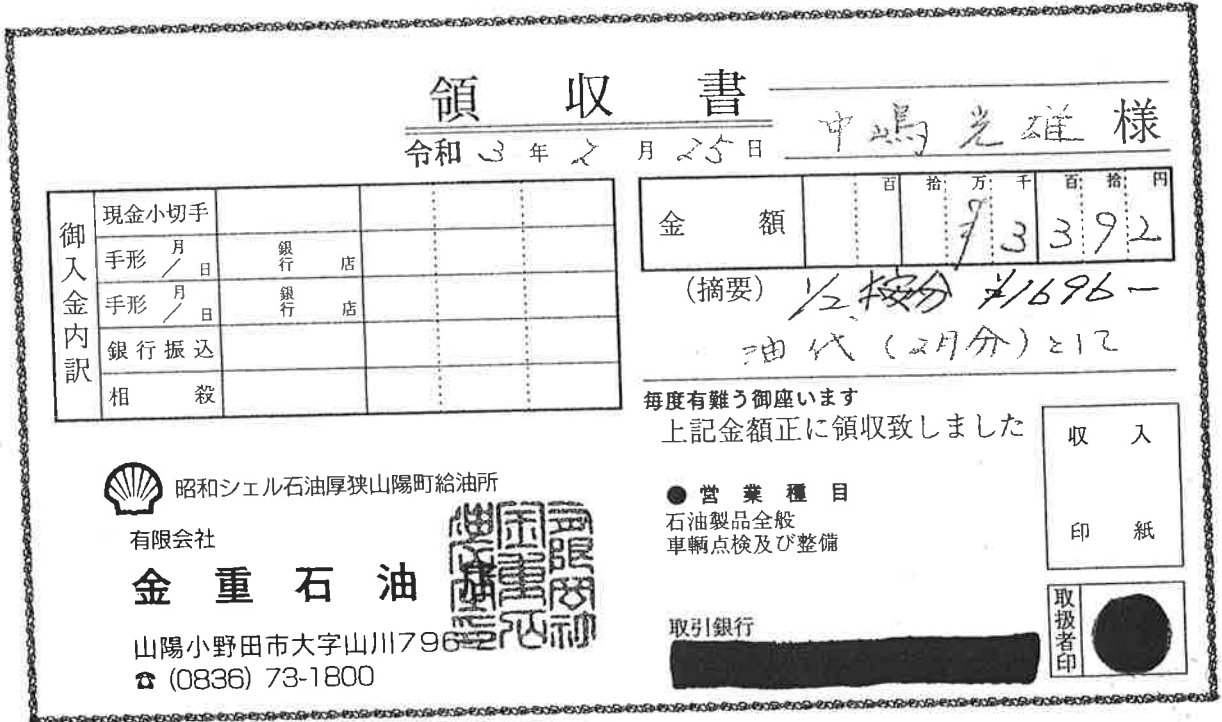 領収書
令和 3 年 2 月 25 日
中嶋光雄 様
御入金内訳
現金小切手
手形 月/日 銀行 店
手形 月/日 銀行 店
銀行振込
相殺
金額
百 拾 万 千 百 拾 円
¥3392
(摘要) 1/2 按分 ¥1696-
油代(2月分)として
毎度有難う御座います
上記金額正に領収致しました
収入
印紙
昭和シェル石油厚狭山陽町給油所
有限会社
金重石油店
山陽小野田市大字山川796
☎ (0836) 73-1800
● 営業種目
石油製品全般
車輌点検及び整備
取引銀行
取扱者印